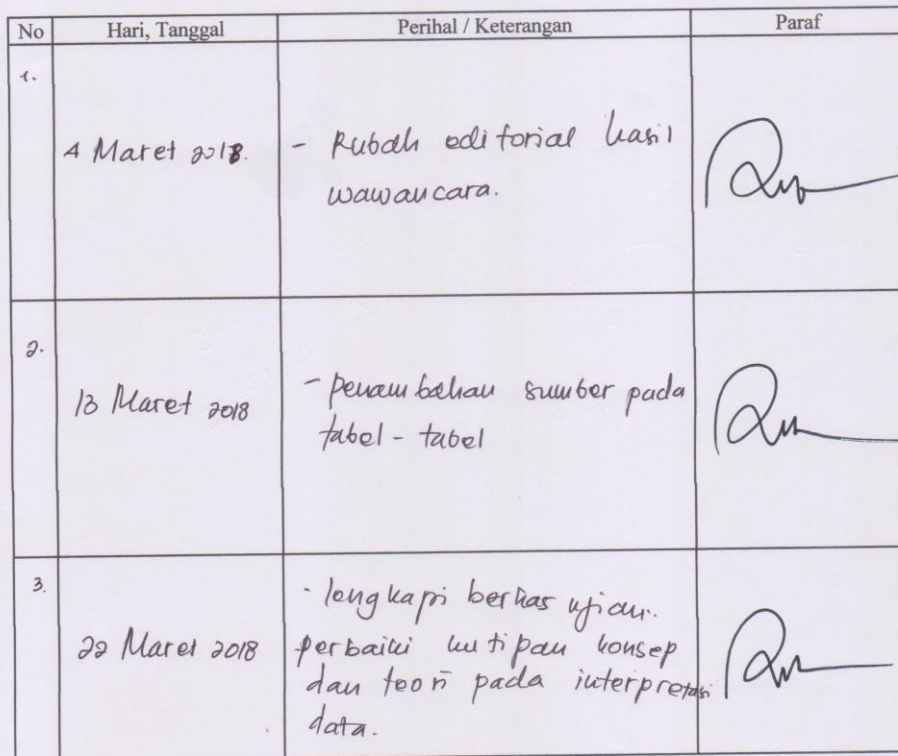 No Hari, Tanggal Perihal / Keterangan Paraf
1.
4 Maret 2018. - Rubah editorial hasil
wawancara.
2.
13 Maret 2018 - penambahan sumber pada
tabel - tabel
3.
22 Maret 2018 - lengkapi berkas ujian.
perbaiki kutipan konsep
dan teori pada interpretasi
data.